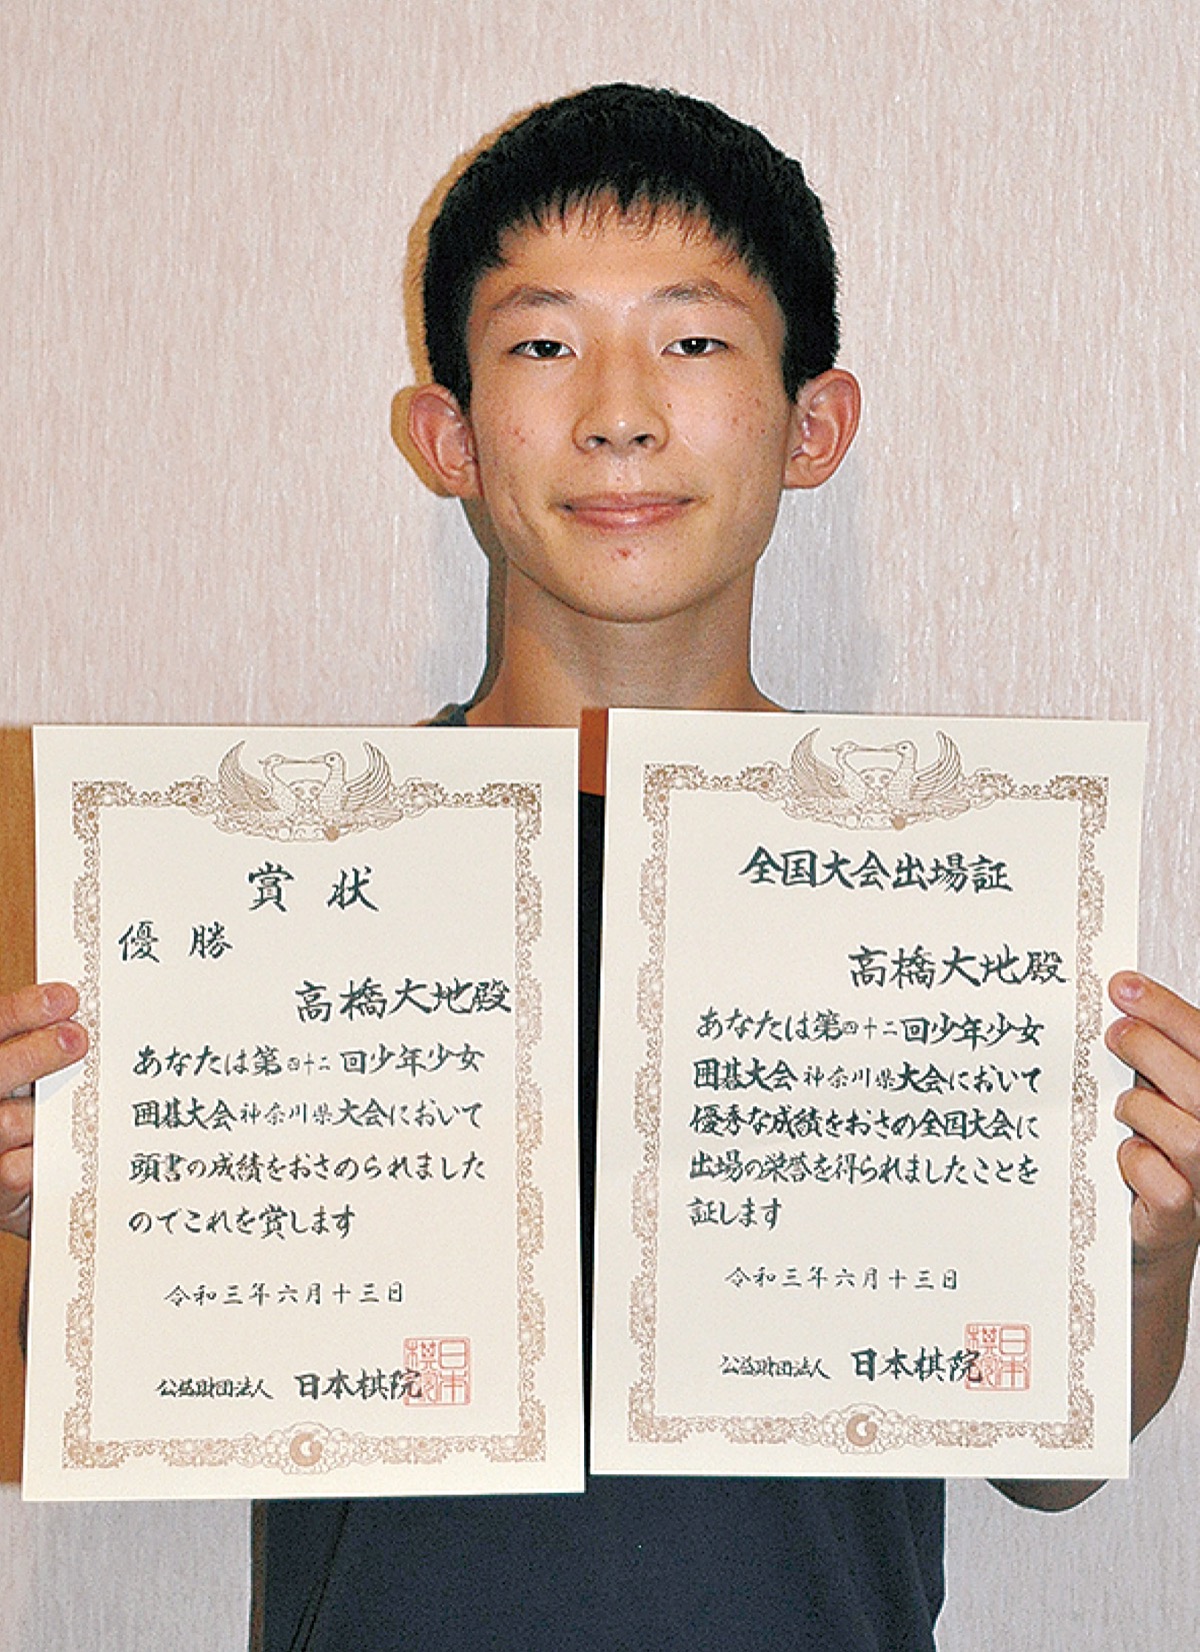 賞状
優勝
高橋大地殿
あなたは第四十二回少年少女
囲碁大会神奈川県大会において
頭書の成績をおさめられました
のでこれを賞します
令和三年六月十三日
公益財団法人 日本棋院
日本棋院
全国大会出場証
高橋大地殿
あなたは第四十二回少年少女
囲碁大会神奈川県大会において
優秀な成績をおさめ全国大会に
出場の栄誉を得られましたことを
証します
令和三年六月十三日
公益財団法人 日本棋院
日本棋院